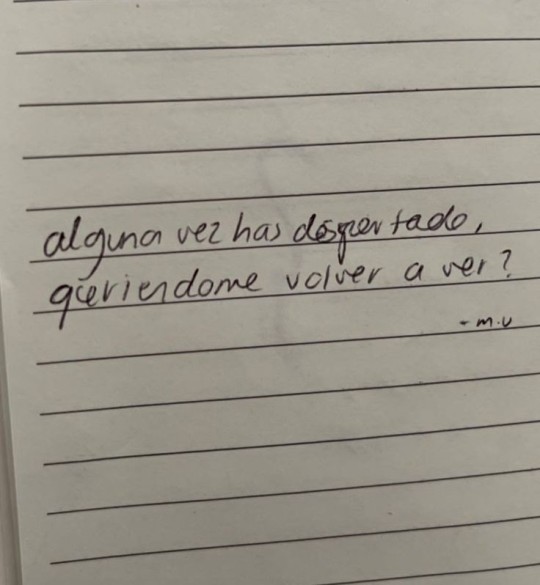 alguna vez has despertado,
queriendome volver a ver?
- m.u